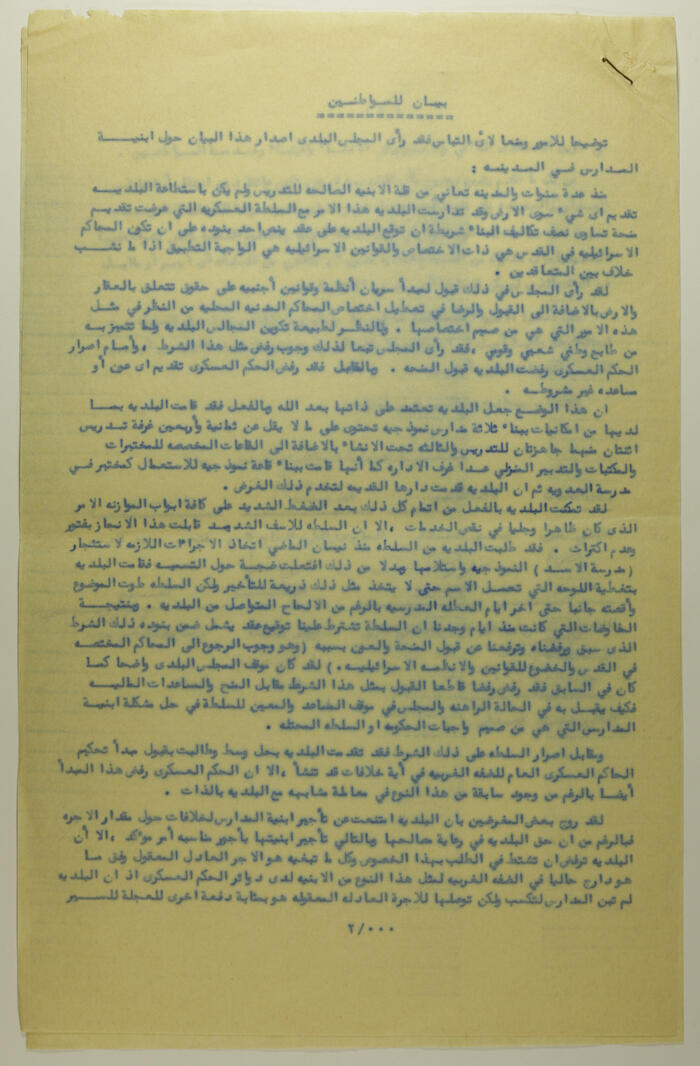 بيان للمواطنين
توضيحا للامور ومنعا لاى التباس فقد رأى المجلس البلدى اصدار هذا البيان حول ابنية
المدارس في المدينه :
منذ عدة سنوات والمدينه تعاني من قلة الابنيه الصالحه للتدريس ولم يكن باستطاعة البلديه
تقديم اى شي* سوى الارض وقد تدارست البلديه هذا الامر مع السلطة العسكريه التي عرضت تقديم
منحة تساوى نصف تكاليف البنا* شريطة ان توقع البلديه على عقد ينص احد بنوده على ان تكون المحاكم
الاسرائيليه في القدس هي ذات الاختصاص والقوانين الاسرائيليه هي الواجبة التطبيق اذا ما نشب
خلاف بين المتعاقدين .
لقد رأى المجلس في ذلك قبول لمبدأ سريان أنظمة وقوانين أجنبيه على حقوق تتعلق بالعقار
والارض بالاضافة الى القبول والرضا في تعطيل اختصاص المحاكم المدنيه المحليه من النظر في مثل
هذه الامور التي هي من صميم اختصاصها . وبالنظر لطبيعة تكوين المجالس البلديه وما تتميز به
من طابع وطني شعبي وقومي ، فقد رأى المجلس تبعا لذلك وجوب رفض مثل هذا الشرط ، وأمام اصرار
الحكم العسكرى رفضت البلديه قبول المنحه . وبالمقابل فقد رفض الحكم العسكرى تقديم اى عون أو
مساعده غير مشروطه .
ان هذا الوضع جعل البلديه تعتمد على ذاتها بعد الله وبالفعل فقد قامت البلديه بما
لديها من امكانيات ببنا* ثلاثة مدارس نموذجيه تحتوى على ما لا يقل عن ثمانية وأربعين غرفة تدريس
اثنتان منهما جاهزتان للتدريس والثالثه تحت الانشا* بالاضافة الى القاعات المخصصه للمختبرات
والمكتبات والتدبير المنزلي عدا غرف الاداره كما أنها قامت ببنا* قاعة نموذجيه للاستعمال كمختبر في
مدرسة العدويه ثم ان البلديه قدمت دارها القديمه لتخدم ذلك الغرض .
لقد تمكنت البلديه بالفعل من اتمام كل ذلك بعد الضغط الشديد على كافة ابواب الموازنه الامر
الذى كان ظاهرا وجليا في نقص الخدمات ، الا ان السلطه للاسف الشديد قابلت هذا الانجاز بفتور
وعدم اكتراث . فقد طلبت البلديه من السلطه منذ نيسان الماضي اتخاذ الاجرا*ات اللازمه لاستئجار
( مدرسة الاسد ) النموذجيه واستلامها وبدلا من ذلك افتعلت ضجة حول التسميه فقامت البلديه
بتغطية اللوحه التي تحصل الاسم حتى لا يتخذ مثل ذلك ذريعة للتأخير ولكن السلطه طوت الموضوع
وأقصته جانبا حتى اخر ايام العطله المدرسيه بالرغم من الالحاح المتواصل من البلديه . ونتيجة
المفاوضات التي كانت منذ ايام وجدنا ان السلطة تشترط علينا توقيع عقد يشمل ضمن بنوده ذلك الشرط
الذى سبق ورفضناه وترفعنا عن قبول المنحة والعون بسببه ( وهو وجوب الرجوع الى المحاكم المختصه
في القدس والخضوع للقوانين والانظمه الاسرائيليه . ) لقد كان موقف المجلس البلدى واضحا كما
كان في السابق فقد رفض رفضا قاطعا القبول بمثل هذا الشرط مقابل المنح والمساعدات الماليه
فكيف يقبل به في الحالة الراهنه والمجلس في موقف المساعد والمعين للسلطة في حل مشكلة ابنية
المدارس التي هي من صميم واجبات الحكومه او السلطه المحتله .
ومقابل اصرار السلطه على ذلك الشرط فقد تقدمت البلديه بحل وسط وطالبت بقبول مبدأ تحكيم
الحاكم العسكرى العام للضفه الغربيه في أية خلافات قد تنشأ ، الا ان الحكم العسكرى رفض هذا المبدأ
أيضا بالرغم من وجود سابقة من هذا النوع في معاملة مشابهه مع البلديه بالذات .
لقد روج بعض المغرضين بان البلديه امتنعت عن تأجير ابنية المدارس لخلافات حول مقدار الاجره
فبالرغم من ان حق البلديه في رعاية مصالحها وبالتالي تأجير ابنيتها بأجور مناسبه أمر مؤكد ، الا أن
البلديه ترفض ان تشتط في الطلب بهذا الخصوص وكل ما تبغيه هو الاجر العادل المعقول وفق ما
هو دارج حاليا في الضفه الغربيه لمثل هذا النوع من الابنيه لدى دوائر الحكم العسكرى اذ ان البلديه
لم تبن المدارس لتكسب ولكن توصلها للاجرة العادله المعقوله هو بمثابة دفعة اخرى للعجلة للسير
٢/٠٠٠